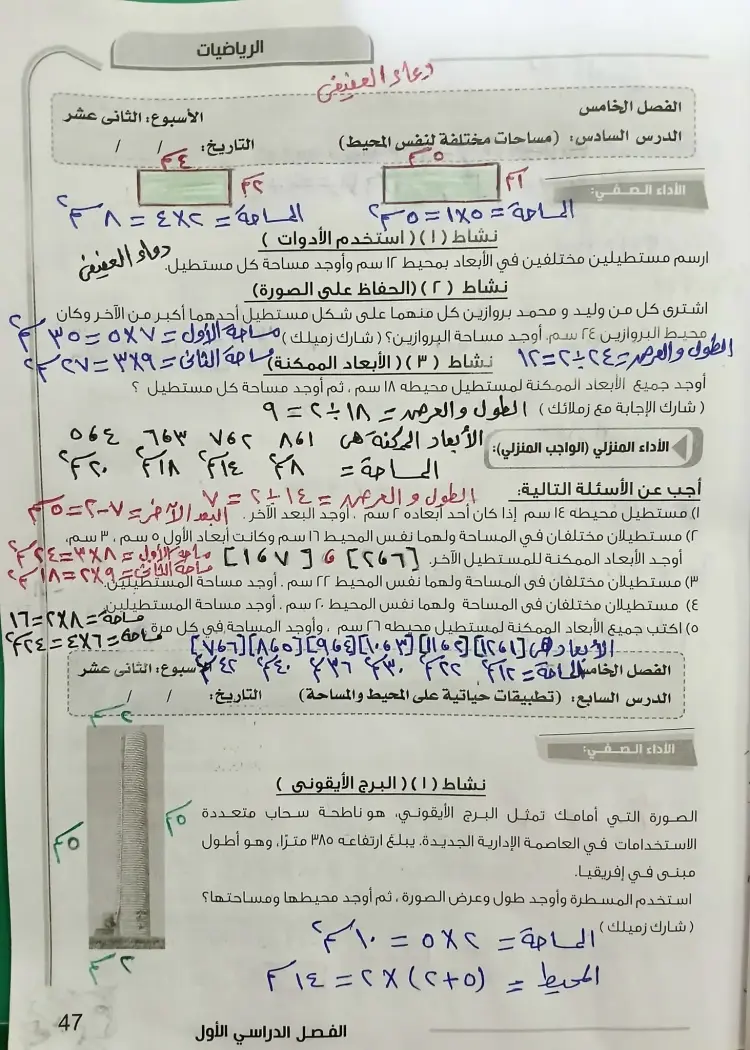 الرياضيات
دعاء العفيفى
الفصل الخامس
الأسبوع: الثانى عشر
الدرس السادس: (مساحات مختلفة لنفس المحيط)
التاريخ: / /
٥سم
٤سم
الأداء الصفي:
١سم
٢سم
المساحة = ٥×١ = ٥سم٢
المساحة = ٢×٤ = ٨سم٢
نشاط (١) (استخدم الأدوات)
ارسم مستطيلين مختلفين في الأبعاد بمحيط ١٢ سم وأوجد مساحة كل مستطيل.
دعاء العفيفى
نشاط (٢) (الحفاظ على الصورة)
اشترى كل من وليد و محمد بروازين كل منهما على شكل مستطيل أحدهما أكبر من الآخر وكان
محيط البروازين ٢٤ سم. أوجد مساحة البروازين؟ (شارك زميلك)
مساحة الأول = ٧×٥ = ٣٥ سم٢
الطول والعرض = ٢٤÷٢ = ١٢
مساحة الثانى = ٩×٣ = ٢٧ سم٢
نشاط (٣) (الأبعاد الممكنة)
أوجد جميع الأبعاد الممكنة لمستطيل محيطه ١٨ سم ، ثم أوجد مساحة كل مستطيل ؟
(شارك الإجابة مع زملائك)
الطول والعرض = ١٨÷٢ = ٩
الأبعاد الممكنة هى ٨،١ ٧،٢ ٦،٣ ٥،٤
الأداء المنزلي (الواجب المنزلي):
المساحة = ٨سم٢ ١٤سم٢ ١٨سم٢ ٢٠سم٢
أجب عن الأسئلة التالية:
الطول والعرض = ١٤÷٢ = ٧
١) مستطيل محيطه ١٤ سم إذا كان أحد أبعاده ٢ سم ، أوجد البعد الآخر.
البعد الآخر = ٧-٢ = ٥سم
٢) مستطيلان مختلفان في المساحة ولهما نفس المحيط ١٦ سم وكانت أبعاد الأول ٥ سم ، ٣ سم،
أوجد الأبعاد الممكنة للمستطيل الآخر.
[٢،٦] ، [١،٧]
مساحة الأول = ٨×٣ = ٢٤سم٢
مساحة الثانى = ٩×٢ = ١٨سم٢
٣) مستطيلان مختلفان في المساحة ولهما نفس المحيط ٢٢ سم . أوجد مساحة المستطيلين.
٤) مستطيلان مختلفان في المساحة ولهما نفس المحيط ٢٠ سم . أوجد مساحة المستطيلين.
مساحة = ٨×٢ = ١٦
٥) اكتب جميع الأبعاد الممكنة لمستطيل محيطه ٢٦ سم ، وأوجد المساحة في كل مرة.
مساحة = ٦×٤ = ٢٤سم٢
الأبعاد هى [١٢،١] [١١،٢] [١٠،٣] [٩،٤] [٨،٥] [٧،٦]
المساحة = ١٢سم٢ ٢٢سم٢ ٣٠سم٢ ٣٦سم٢ ٤٠سم٢ ٤٢سم٢
الفصل الخامس
الأسبوع: الثانى عشر
الدرس السابع: (تطبيقات حياتية على المحيط والمساحة)
التاريخ: / /
٢سم
الأداء الصفي:
نشاط (١) (البرج الأيقونى)
الصورة التي أمامك تمثل البرج الأيقوني، هو ناطحة سحاب متعددة
٥سم
الاستخدامات في العاصمة الإدارية الجديدة. يبلغ ارتفاعه ٣٨٥ مترًا، وهو أطول
٥سم
مبنى في إفريقيا.
استخدم المسطرة وأوجد طول وعرض الصورة ، ثم أوجد محيطها ومساحتها؟
(شارك زميلك)
المساحة = ٢×٥ = ١٠سم٢
٢سم
المحيط = (٥+٢)×٢ = ١٤سم
47
الفصل الدراسي الأول